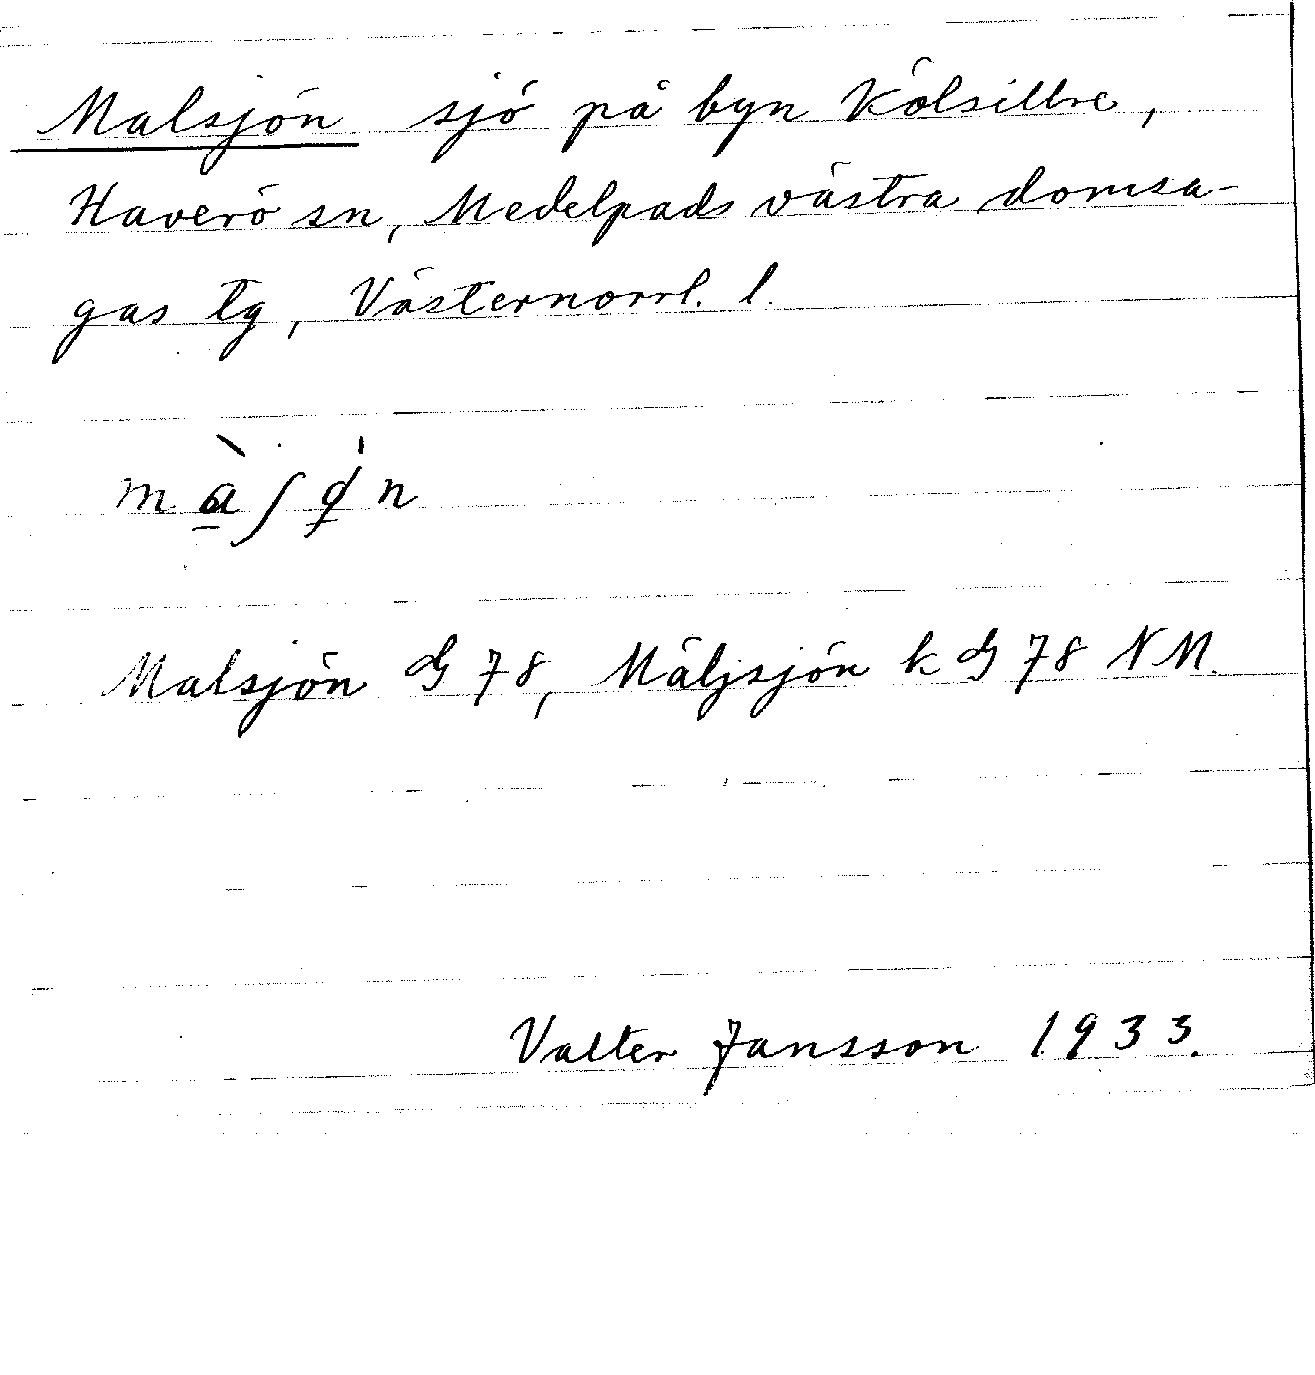 Malsjön sjö på byn Kölsillre,
Haverö sn, Medelpads västra domsa-
gas tg, Västernorrl. l.
Malsjön G 78, Mäljsjön k G 78 NM.
Valter Jansson 1933.